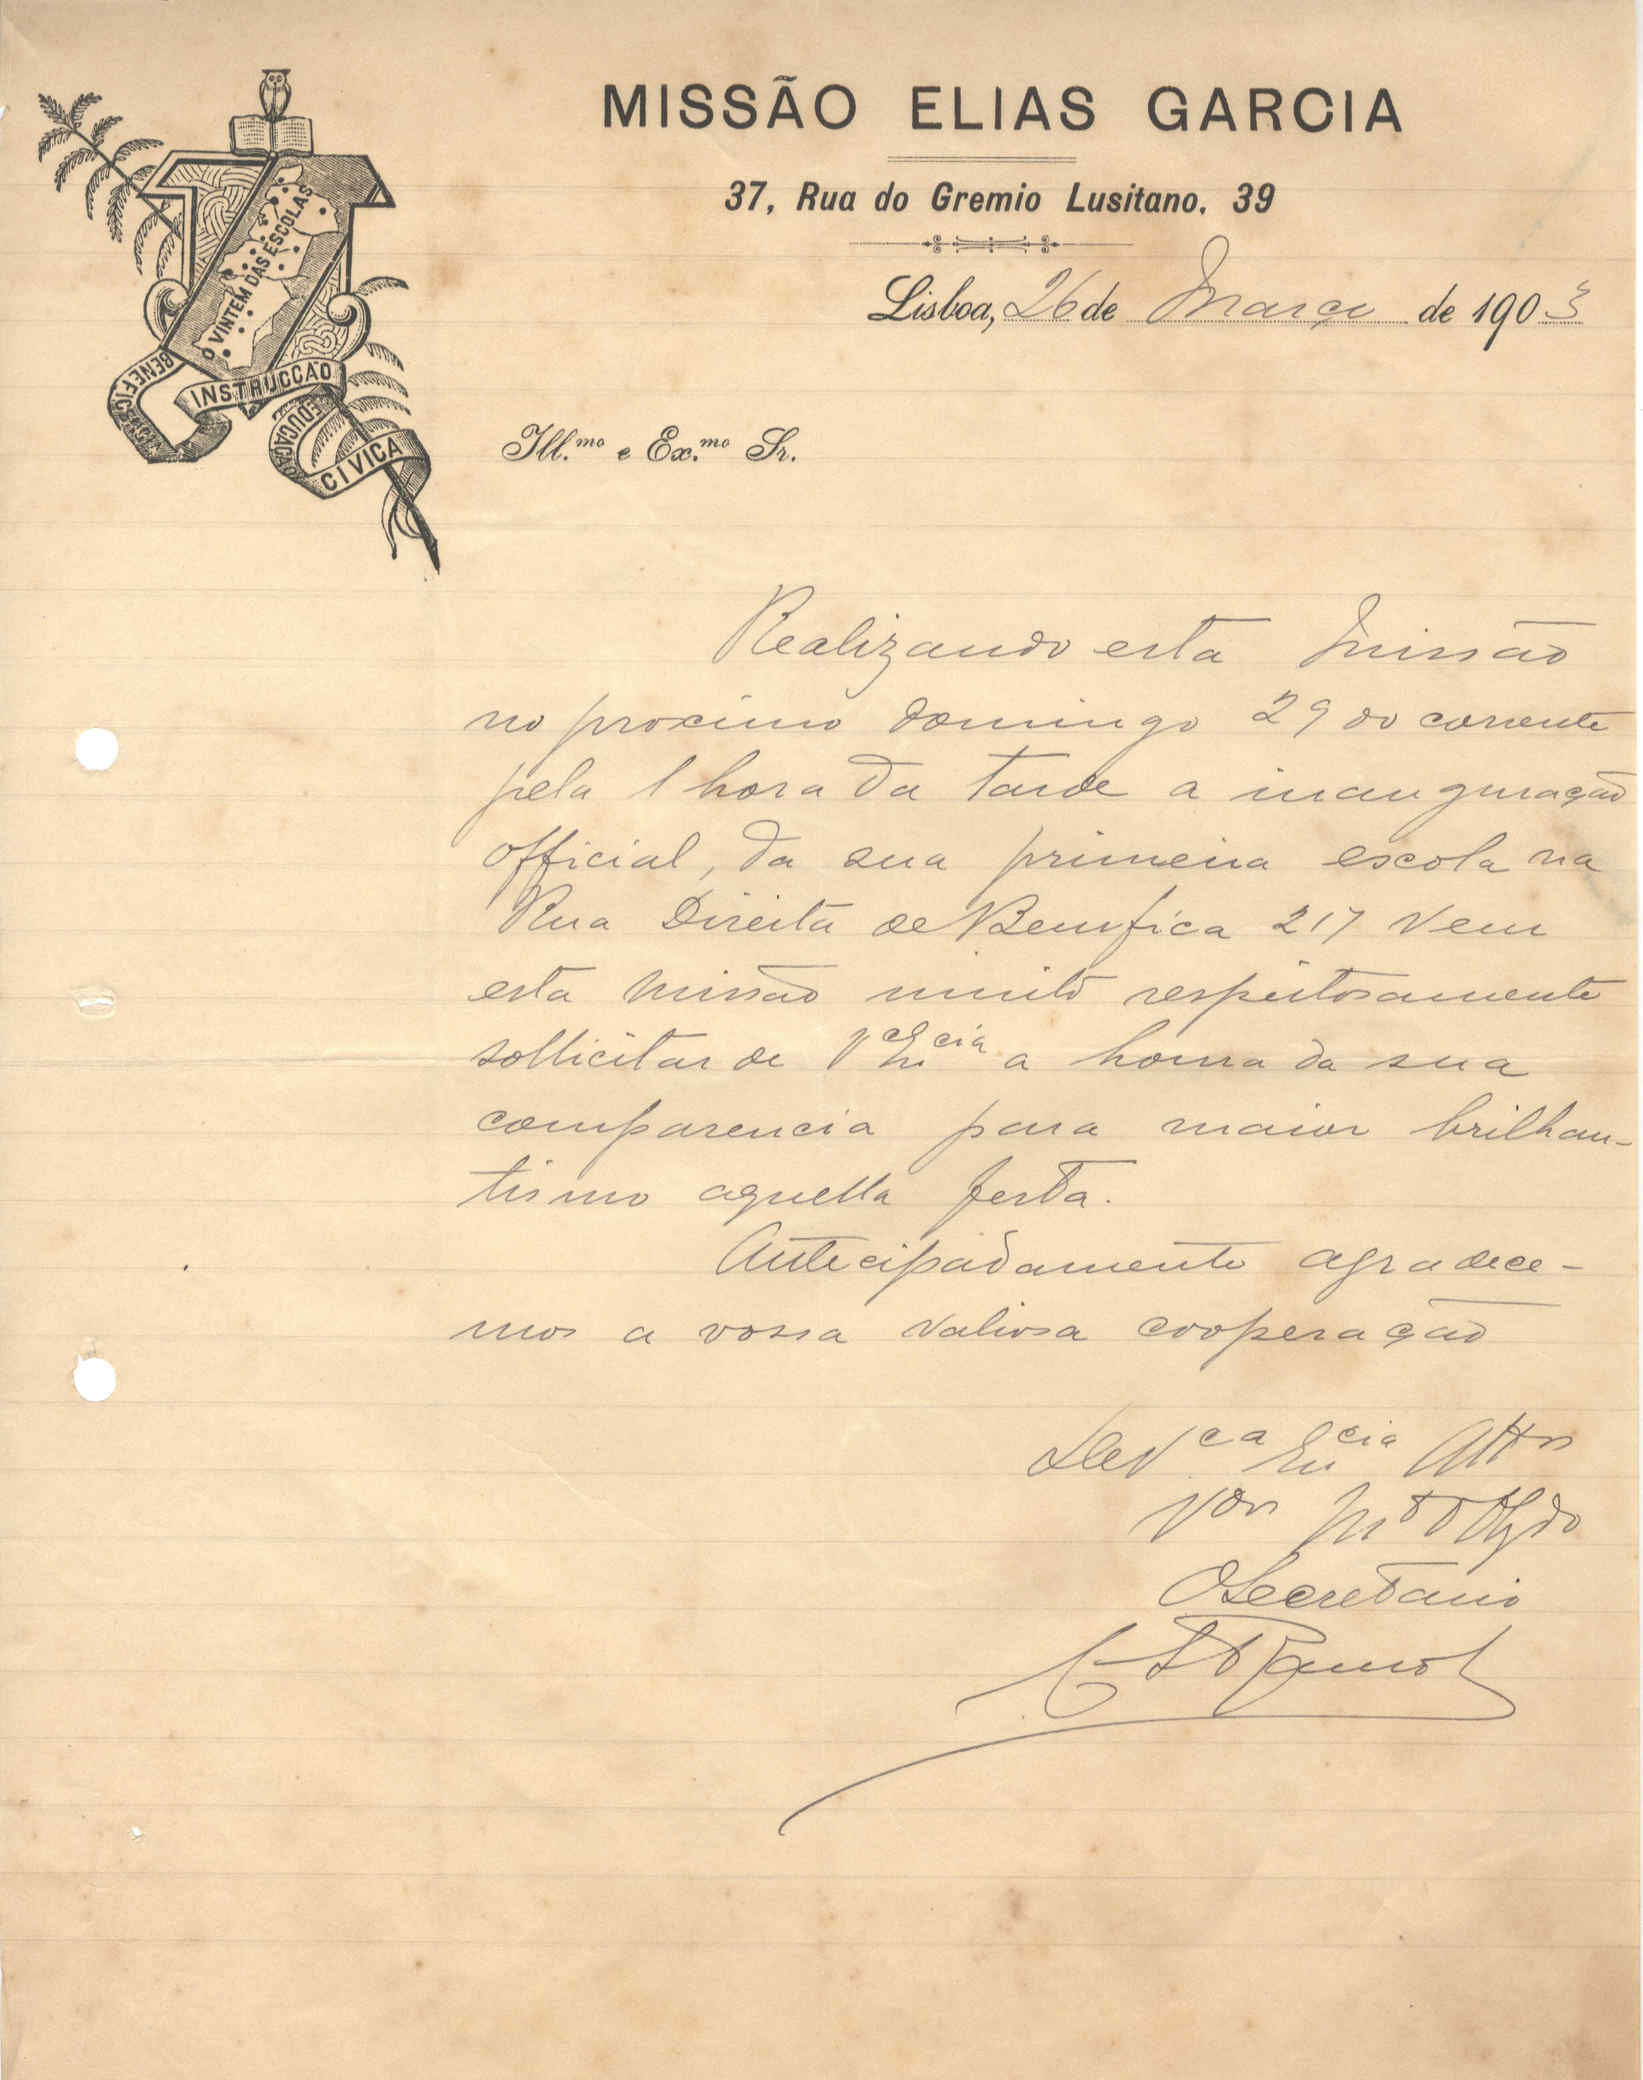 MISSÃO ELIAS GARCIA
37, Rua do Gremio Lusitano, 39
Lisboa, 26 de Março de 1903
O VINTEM DAS ESCOLAS
BENEFICENCIA
INSTRUCCÃO
EDUCAÇÃO
CIVICA
Ill.mo e Ex.mo Sr.
Realizando esta Missão
no proximo domingo 29 do corrente
pela 1 hora da tarde a inauguração
official, da sua primeira escola na
Rua Direita de Bemfica 217 vem
esta Missão muito respeitosamente
sollicitar de V.ca Ex.cia a honra da sua
comparencia para maior brilhan-
tismo aquella festa.
Antecipadamente agradece-
mos a vossa valiosa cooperação
De V.ca Ex.cia Att.os
V.ors M.to
O Secretario
Ramos